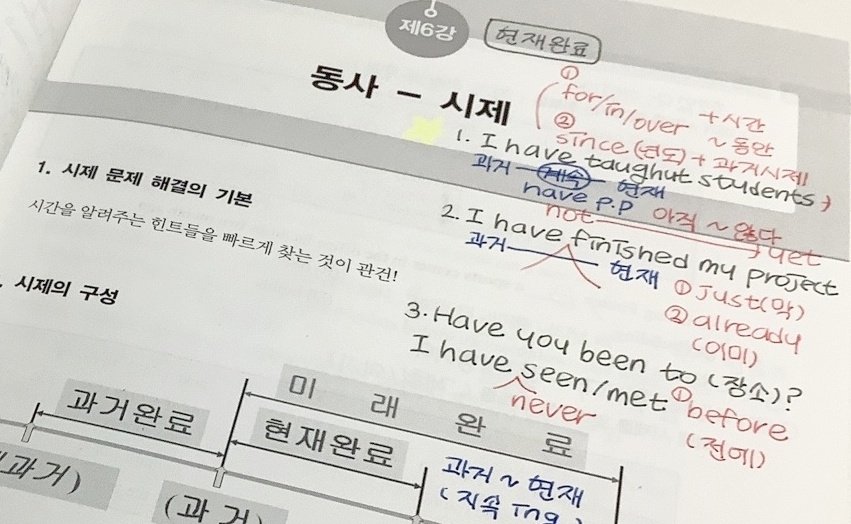 제6강
현재완료
동사 – 시제
① for/in/over + 시간
~ 동안
② since (년도) + 과거시제
1. I have taughut students
과거 계속 현재
have p.p
not 아직 ~ 않다
yet
2. I have finished my project
과거 현재
① just(막)
② already
(이미)
3. Have you been to (장소)?
I have seen/met
never
① before
(전에)
1. 시제 문제 해결의 기본
시간을 알려주는 힌트들을 빠르게 찾는 것이 관건!
시제의 구성
미 래 완 료
과거완료
현재완료
과거 ~ 현재
(지속 ing)
과거)
(과 거)